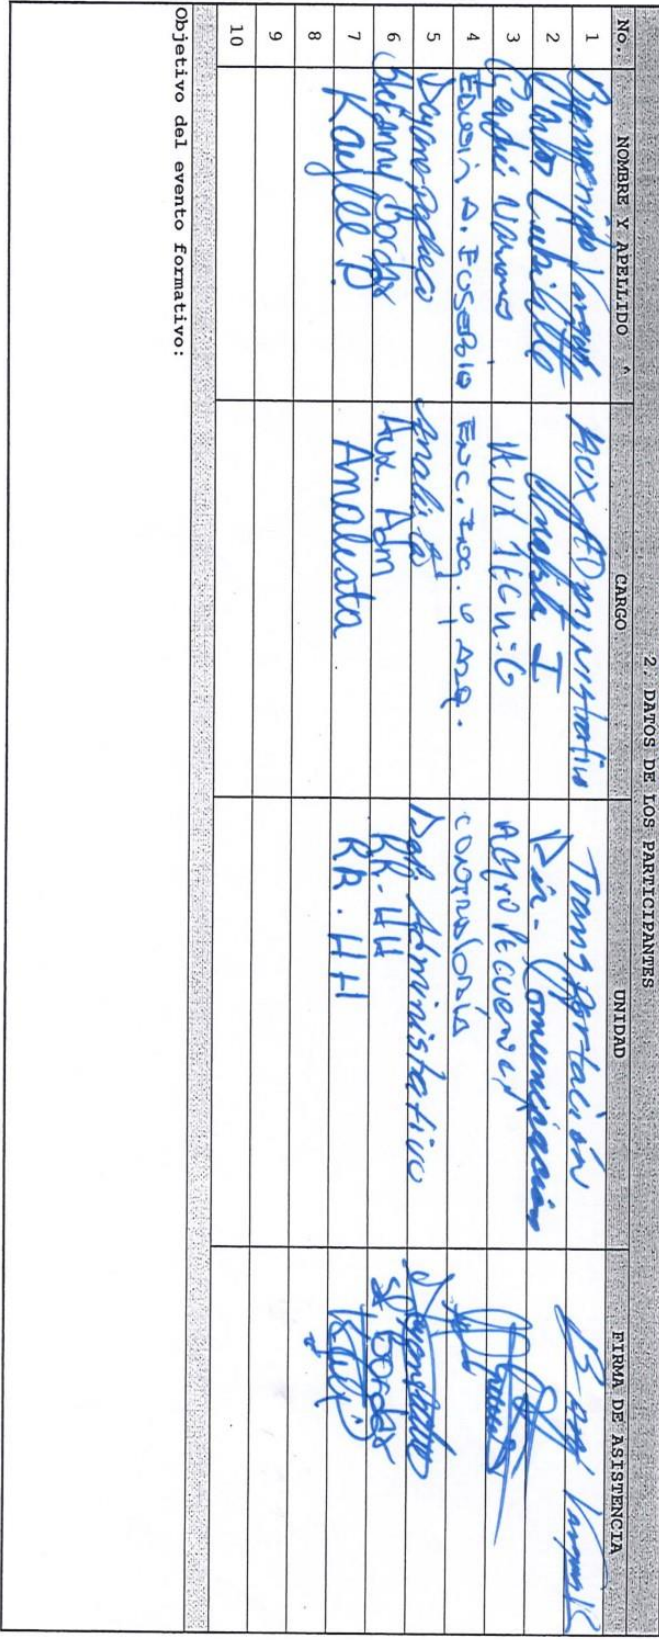 2. DATOS DE LOS PARTICIPANTES
No. NOMBRE Y APELLIDO CARGO UNIDAD FIRMA DE ASISTENCIA
1 Bienvenido Vargas Aux Administrativo Transportación
2 Analista I Dir. Comunicación
3 Aux Tecnico
4 Edwin A. Eusebio Enc. Ing. y Arq. Contraloria
5 Dayana Pacheco Analista Dept. Administrativo
6 Bordas Aux. Adm RR. HH Bordas
7 Kaylee P. Analista RR. HH
8
9
10
Objetivo del evento formativo: